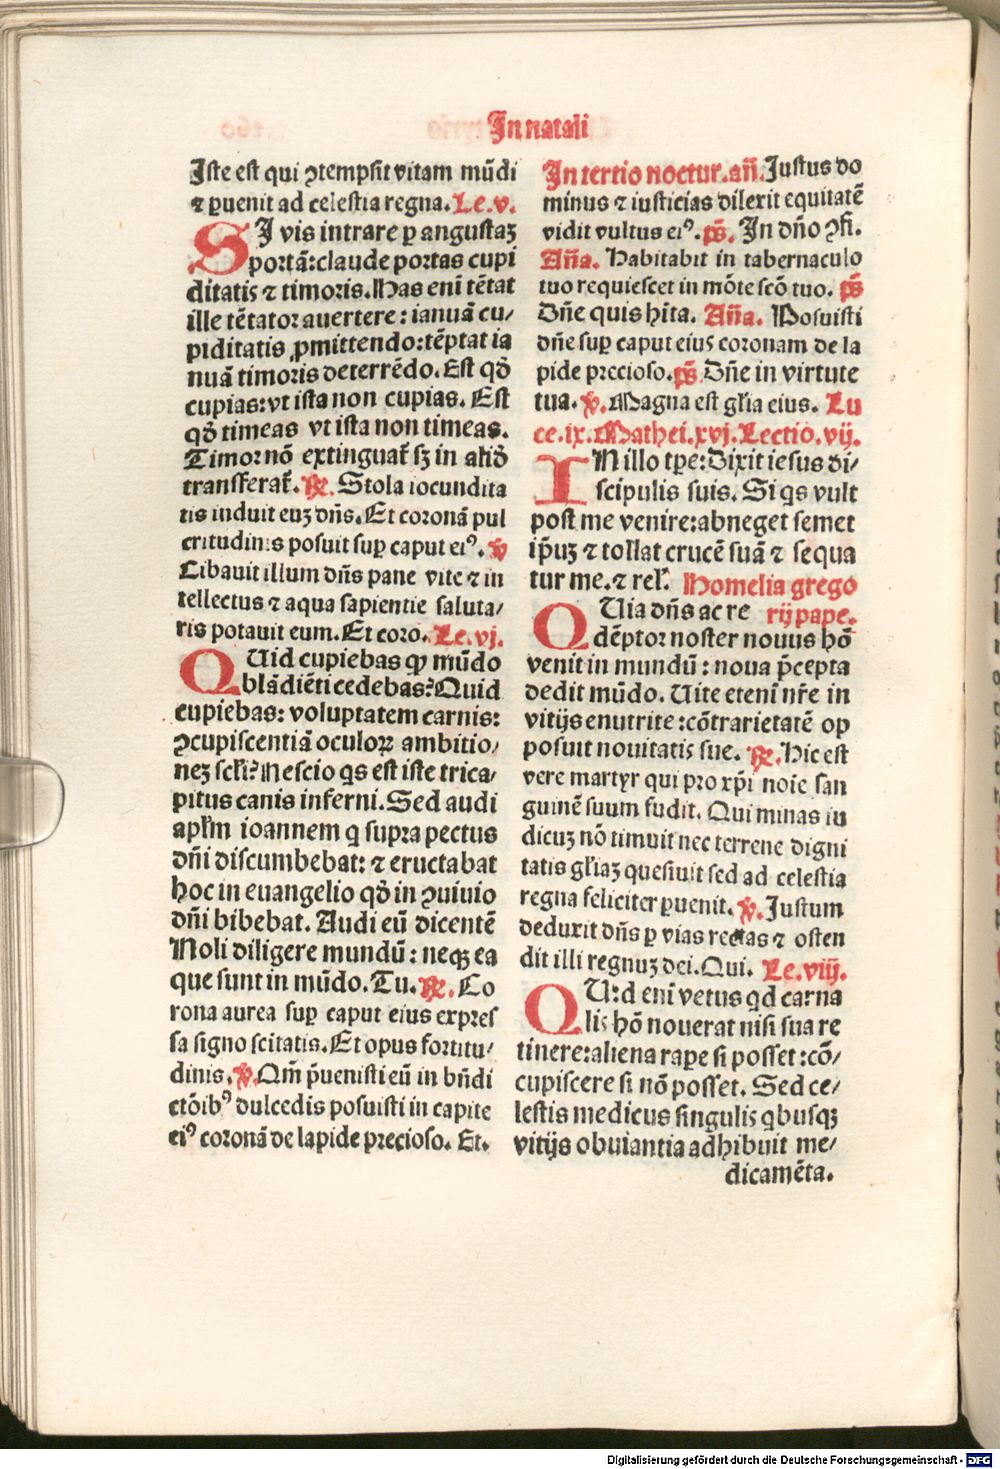 In natali
Iste est qui ꝯtempsit vitam mūdi
⁊ ꝑuenit ad celestia regna. Le. v.
SI vis intrare ꝑ angustaꝫ
portā: claude portas cupi
ditatis ⁊ timoris. Has eni tētat
ille tētator auertere: ianuā cu/
piditatis ꝓmittendo: tēptat ia
nuā timoris deterrēdo. Est qḋ
cupias: vt ista non cupias. Est
qḋ timeas vt ista non timeas.
Timor nō extinguat̄ sꝫ in aliḋ
transferat̄. ℟. Stola iocundita
tis induit euꝫ dn̄s. Et coronā pul
critudinis posuit suꝑ caput ei⁹. ℣
Cibauit illum dn̄s pane vite ⁊ in
tellectus ⁊ aqua sapientie saluta/
ris potauit eum. Et coro. Le. vj.
QUid cupiebas qn̄ mūdo
blādiēti cedebas? Quid
cupiebas: voluptatem carnis:
ꝯcupiscentiā oculoꝝ ambitio/
neꝫ scl̄i? Nescio qs est iste trica/
pitus canis inferni. Sed audi
apl̄m ioannem q supra pectus
dn̄i discumbebat: ⁊ eructabat
hoc in euangelio qḋ in ꝯuiuio
dn̄i bibebat. Audi eū dicentē
Noli diligere mundū: neqꝫ ea
que sunt in mūdo. Tu. ℟. Co
rona aurea suꝑ caput eius expres
sa signo scitatis. Et opus fortitu/
dinis. ℣. Qm̄ p̄uenisti eū in bn̄di
ctōib⁹ dulcedis posuisti in capite
ei⁹ coronā de lapide p̄cioso. Et.
In tertio noctur. an̄. Justus do
minus ⁊ iusticias dilexit equitatē
vidit vultus ei⁹. p̄s. In dn̄o ꝯfi.
An̄a. Habitabit in tabernaculo
tuo requiescet in mōte scō tuo. p̄s
Dn̄e quis hīta. An̄a. Posuisti
dn̄e suꝑ caput eius coronam de la
pide precioso. p̄s. Dn̄e in virtute
tua. ℣. Magna est gl̄ia eius. Lu
ce. ix. Mathei. xvj. Lectio. vij.
IN illo tꝑe: Dixit iesus di/
scipulis suis. Si qs vult
post me venire: abneget semet
ip̄uꝫ ⁊ tollat crucē suā ⁊ sequa
tur me. ⁊ rel̄. Homelia grego
QUia dn̄s ac re rij pape.
dēptor noster nouus hō
venit in mundū: noua p̄cepta
dedit mūdo. Uite eteni nr̄e in
vitijs enutrite: cōtrarietatē op
posuit nouitatis sue. ℟. Hic est
vere martyr qui pro xp̄i noīe san
guinē suum fudit. Qui minas iu
dicuꝫ nō timuit nec terrene digni
tatis gl̄iaꝫ quesiuit sed ad celestia
regna feliciter ꝑuenit. ℣. Justum
deduxit dn̄s ꝑ vias rectas ⁊ osten
dit illi regnuꝫ dei. Qui. Le. viij.
QUid eni vetus qd carna
lis hō nouerat nisi sua re
tinere: aliena raꝑe si posset: cō/
cupiscere si nō posset. Sed ce/
lestis medicus singulis qbusqꝫ
vitijs obuiantia adhibuit me/
dicamēta.
Digitalisierung gefördert durch die Deutsche Forschungsgemeinschaft - DFG